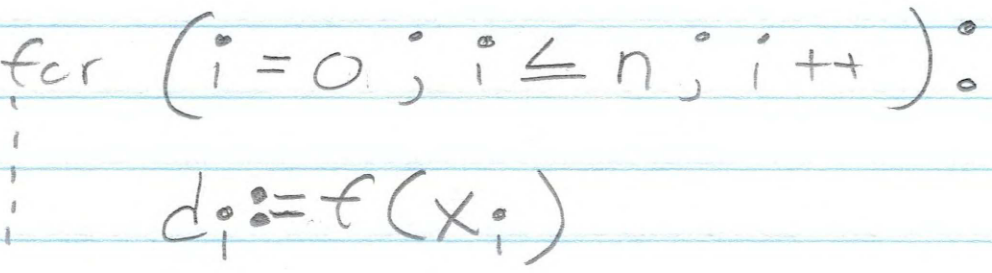 for (i = 0; i ≤ n; i ++):
dᵢ := f(xᵢ)